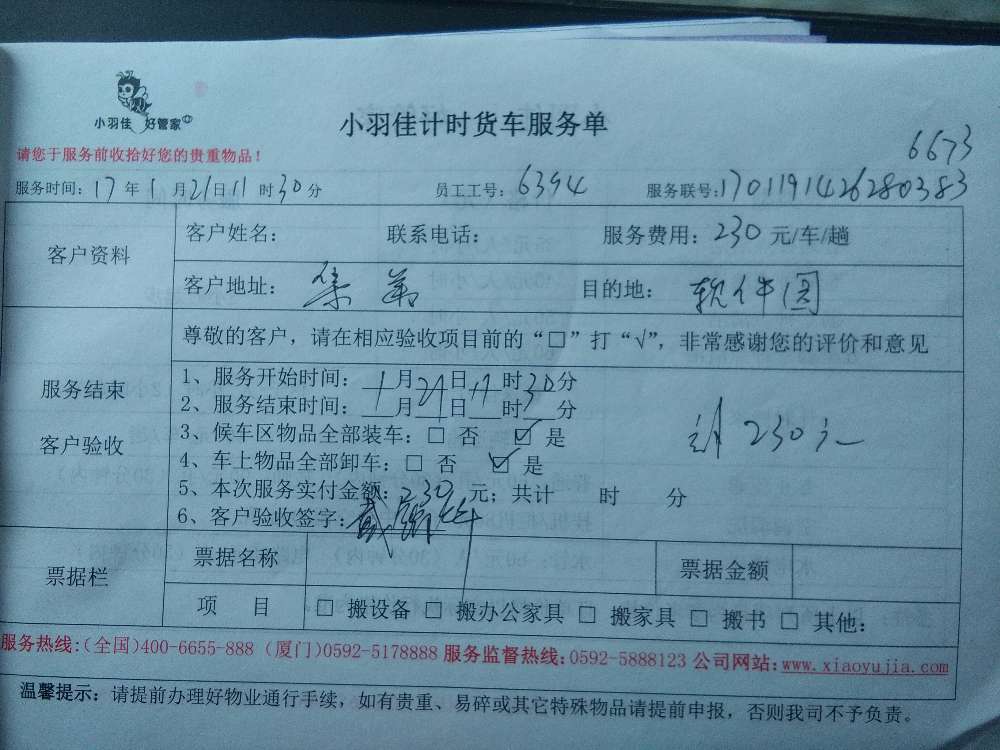 小羽佳 好管家
小羽佳计时货车服务单
6673
请您于服务前收拾好您的贵重物品！
服务时间：17年1月21日11时30分 员工工号：6394 服务联号：1701191426280383
客户资料
客户姓名： 联系电话： 服务费用：230元/车/趟
客户地址： 目的地：软件园
尊敬的客户，请在相应验收项目前的“□”打“√”，非常感谢您的评价和意见
服务结束
客户验收
1、服务开始时间：1月21日11时30分
2、服务结束时间：__月__日__时__分
3、候车区物品全部装车：□ 否 ☑ 是
4、车上物品全部卸车：□ 否 ☑ 是
5、本次服务实付金额：230元；共计 时 分
6、客户验收签字：
230元
票据栏
票据名称 票据金额
项 目 □ 搬设备 □ 搬办公家具 □ 搬家具 □ 搬书 □ 其他：
服务热线：(全国)400-6655-888 (厦门)0592-5178888 服务监督热线：0592-5888123 公司网站：www.xiaoyujia.com
温馨提示：请提前办理好物业通行手续，如有贵重、易碎或其它特殊物品请提前申报，否则我司不予负责。